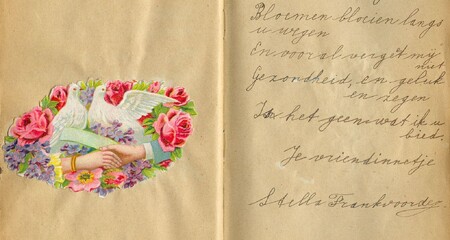 Bloemen bloeien langs
u wegen
En vooral vergit mij
niet
Gezondheid, en geluk
en zegen
Is het geen wat ik u
bied.
Je vriendinnetje
Stella Frankvoorder